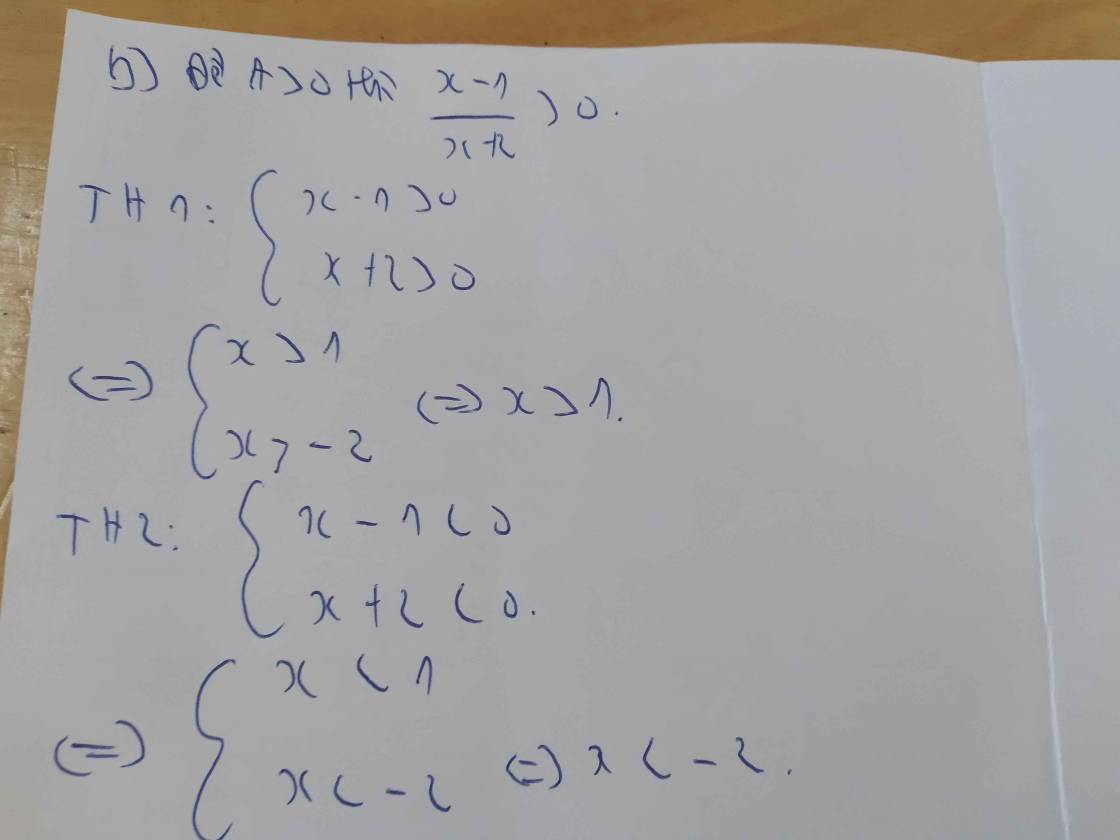 b) Để A > 0 thì \frac{x-1}{x+2} > 0.
TH1: { x - 1 > 0
x + 2 > 0
<=> { x > 1
x > -2 <=> x > 1.
TH2: { x - 1 < 0
x + 2 < 0.
<=> { x < 1
x < -2 <=> x < -2.